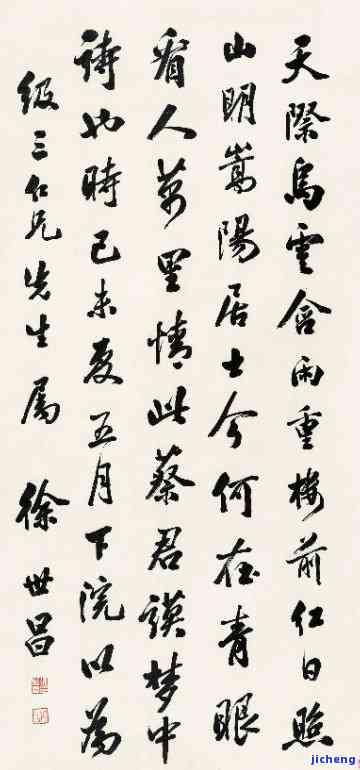 天際烏雲含雨重樓前紅日照
山明嵩陽居士今何在青眼
看人萬里情此蔡君謨夢中
詩也時己未夏五月下浣以為
級三仁兄先生屬 徐世昌
jicheng